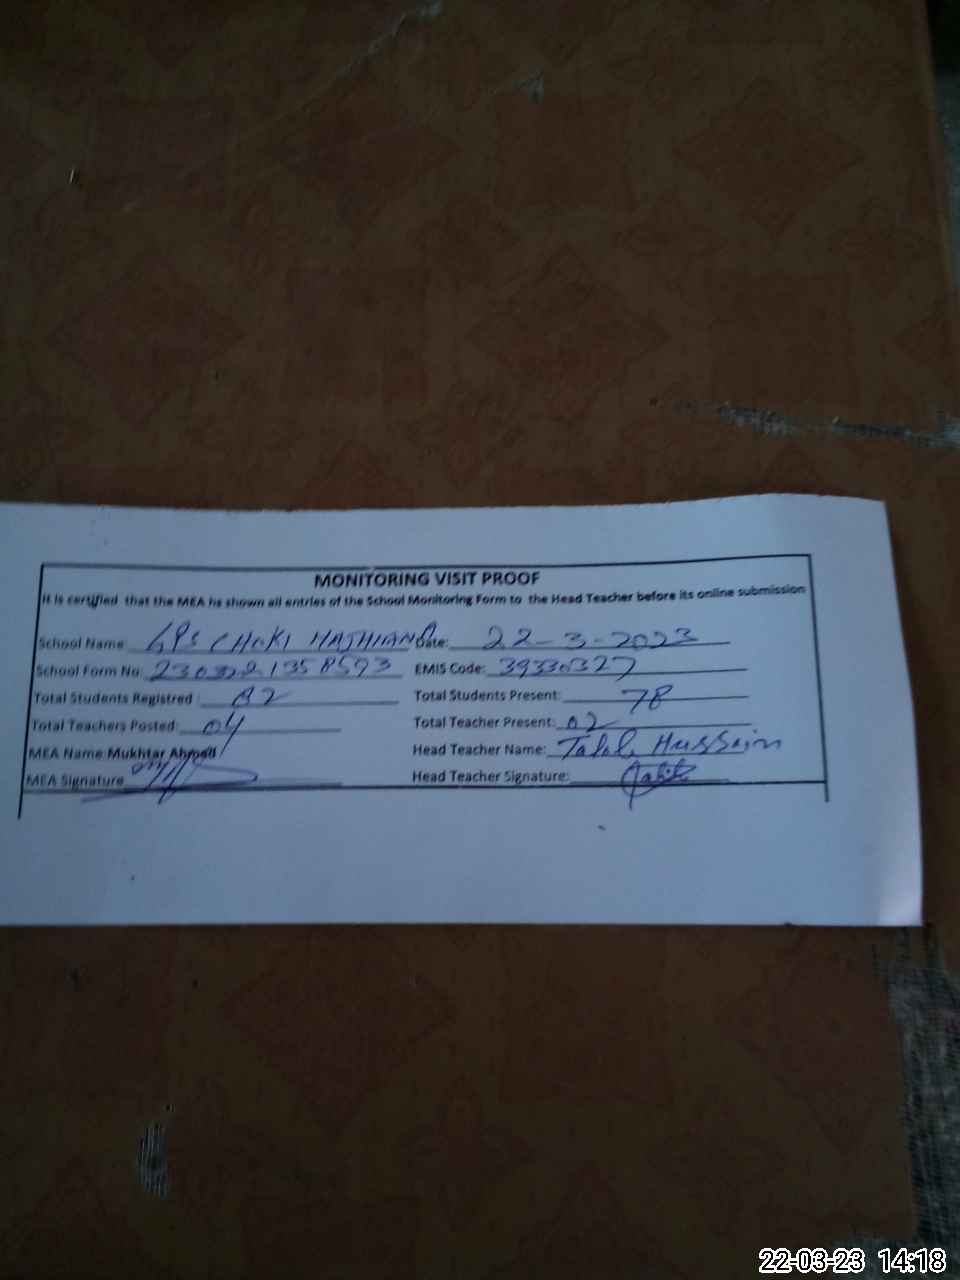 MONITORING VISIT PROOF
It is certified that the MEA hs shown all entries of the School Monitoring Form to the Head Teacher before its online submission
School Name: GPS CHOKI HAJHIANA Date: 22-3-2023
School Form No: EMIS Code: 39330327
Total Students Registred: 82 Total Students Present: 78
Total Teachers Posted: 04 Total Teacher Present: 02
MEA Name: Mukhtar Ahmad Head Teacher Name: Hussain
MEA Signature Head Teacher Signature:
22-03-23 14:18